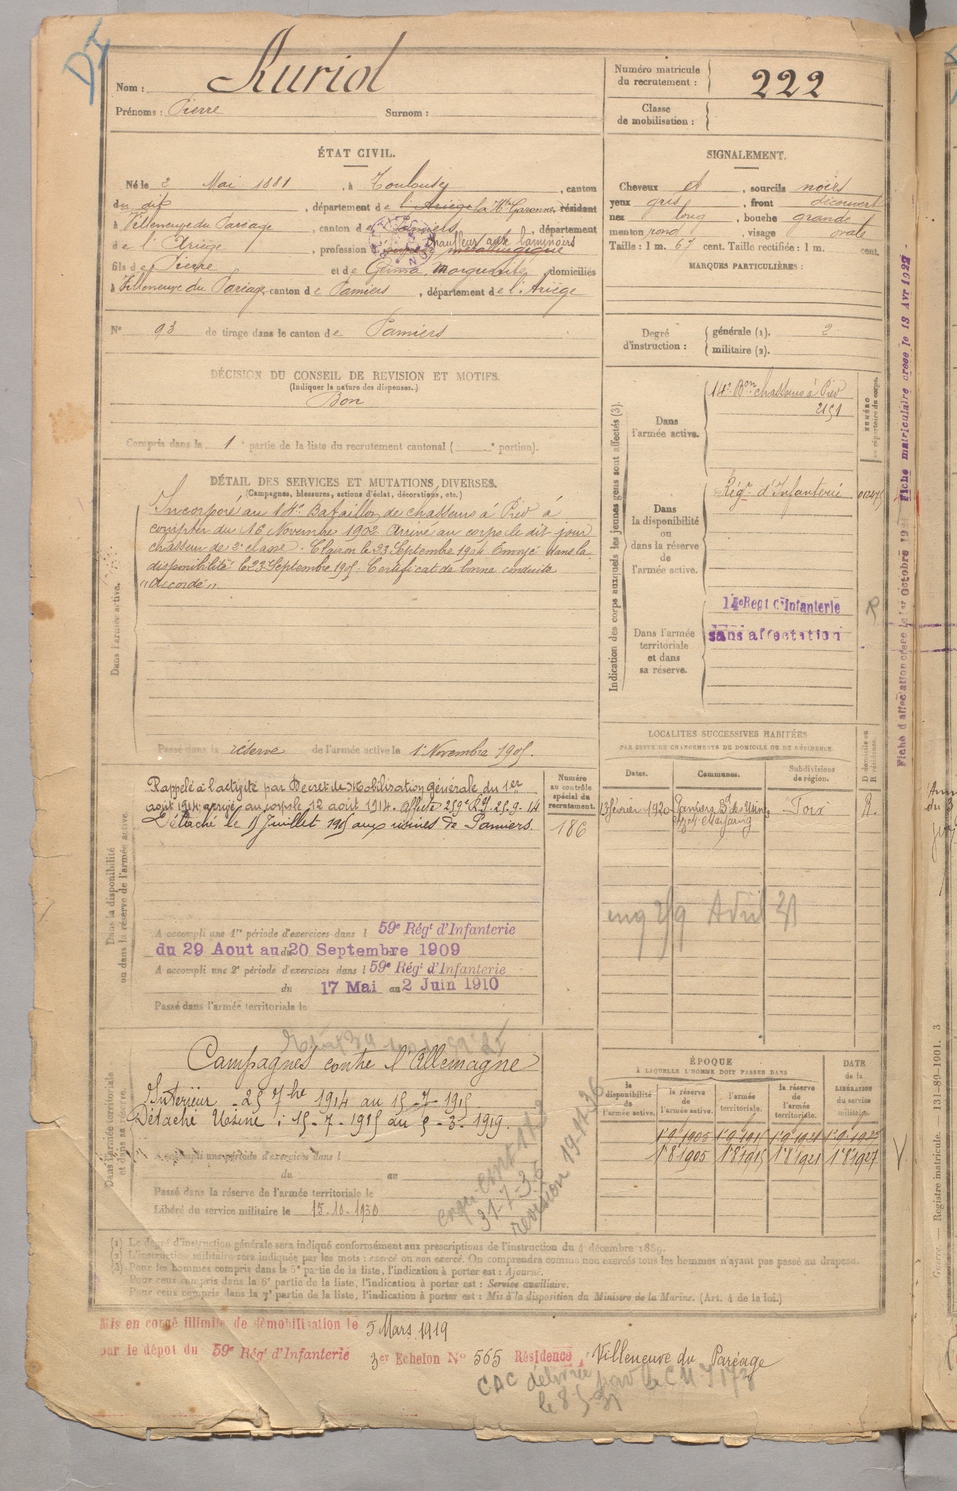 Nom : Auriol
Prénoms : Pierre Surnom :
Numéro matricule du recrutement : 222
Classe de mobilisation :
ÉTAT CIVIL.
Né le 2 Mai 1881, à Toulouse, canton
du dit, département de l'Ariège la Hte Garonne, résidant
à Villeneuve du Paréage, canton de Pamiers, département
de l'Ariège, profession métallurgique
Chauffeur aux laminoirs
fils de Pierre et de Marguerite, domiciliés
à Villeneuve du Paréage, canton de Pamiers, département de l'Ariège
No 93 de tirage dans le canton de Pamiers
SIGNALEMENT.
Cheveux et, sourcils noirs
yeux gris, front découvert
nez long, bouche grande
menton rond, visage ovale
Taille : 1 m. 67 cent. Taille rectifiée : 1 m. cent.
MARQUES PARTICULIÈRES :
Degré d'instruction : générale (1). 2
militaire (2).
DÉCISION DU CONSEIL DE REVISION ET MOTIFS.
(Indiquer la nature des dispenses.)
Bon
Compris dans la 1e partie de la liste du recrutement cantonal ( e portion).
DÉTAIL DES SERVICES ET MUTATIONS DIVERSES.
(Campagnes, blessures, actions d'éclat, décorations, etc.)
Dans l'armée active.
Incorporé au 14e Bataillon de chasseurs à Pied à
compter du 16 Novembre 1902 Arrivé au corps le dit jour
chasseur de 2e classe. Clairon le 23 Septembre 1904 Envoyé dans la
disponibilité le 23 Septembre 1905. Certificat de bonne conduite
"Accordé".
Passé dans la réserve de l'armée active le 1 Novembre 1905.
Indication des corps auxquels les jeunes gens sont affectés (3).
Dans l'armée active.
14e Bon chasseurs à Pied
2151
NUMÉRO au répertoire du corps.
Dans la disponibilité ou dans la réserve de l'armée active.
Régt d'Infanterie
Dans l'armée territoriale et dans sa réserve.
14e Regt d'Infanterie
sans affectation
R
Dans la disponibilité ou dans la réserve de l'armée active.
Rappelé à l'activité par Décret de Mobilisation générale du 1er
août 1914 arrivé au corps le 12 août 1914. Affecté 259e RI 25-9-14
Détaché le 15 Juillet 1915 aux usines de Pamiers.
Numéro au contrôle spécial du recrutement.
186
A accompli une 1re période d'exercices dans l 59e Régt d'Infanterie
du 29 Aout au 20 Septembre 1909
A accompli une 2e période d'exercices dans l 59e Régt d'Infanterie
du 17 Mai au 2 Juin 1910
Passé dans l'armée territoriale le
LOCALITÉS SUCCESSIVES HABITÉES
PAR SUITE DE CHANGEMENTS DE DOMICILE OU DE RÉSIDENCE.
Dates. Communes. Subdivisions de région. D domicile ou R résidence.
13 février 1920 Pamiers Foix R.
Avril 31
Dans l'armée territoriale et dans sa réserve.
Campagnes contre l'Allemagne
Intérieur - 25 7bre 1914 au 15-7-1915
Détaché Usine : 15-7-1915 au 5-3-1919.
A accompli une période d'exercices dans l
du au
Passé dans la réserve de l'armée territoriale le
Libéré du service militaire le 15.10.1930
31-7-36
revision 19-11-36
ÉPOQUE
À LAQUELLE L'HOMME DOIT PASSER DANS
la disponibilité de l'armée active. la réserve de l'armée active. l'armée territoriale. la réserve de l'armée territoriale. DATE de la LIBÉRATION du service militaire.
1.9.1905 1.9.1915 1.9.1921 1.9.1927
1.8.1905 1.8.1915 1.8.1921 1.8.1927
(1) Le degré d'instruction générale sera indiqué conformément aux prescriptions de l'instruction du 4 décembre 1889.
(2) L'instruction militaire sera indiquée par les mots : exercé ou non exercé. On comprendra comme non exercés tous les hommes n'ayant pas passé au drapeau.
(3) Pour les hommes compris dans la 5e partie de la liste, l'indication à porter est : Ajourné.
Pour ceux compris dans la 6e partie de la liste, l'indication à porter est : Service auxiliaire.
Pour ceux compris dans la 7e partie de la liste, l'indication à porter est : Mis à la disposition du Ministre de la Marine. (Art. 4 de la loi.)
Mis en congé illimité de démobilisation le 5 Mars 1919
par le dépot du 59e Régt d'Infanterie 3er Echelon No 565 Résidence Villeneuve du Paréage
CAC délivrée par le CM
le 8-5-31
Fiche matriculaire créée le 13 Avr 1922
Registre matricule. — 131-80-1901. 3